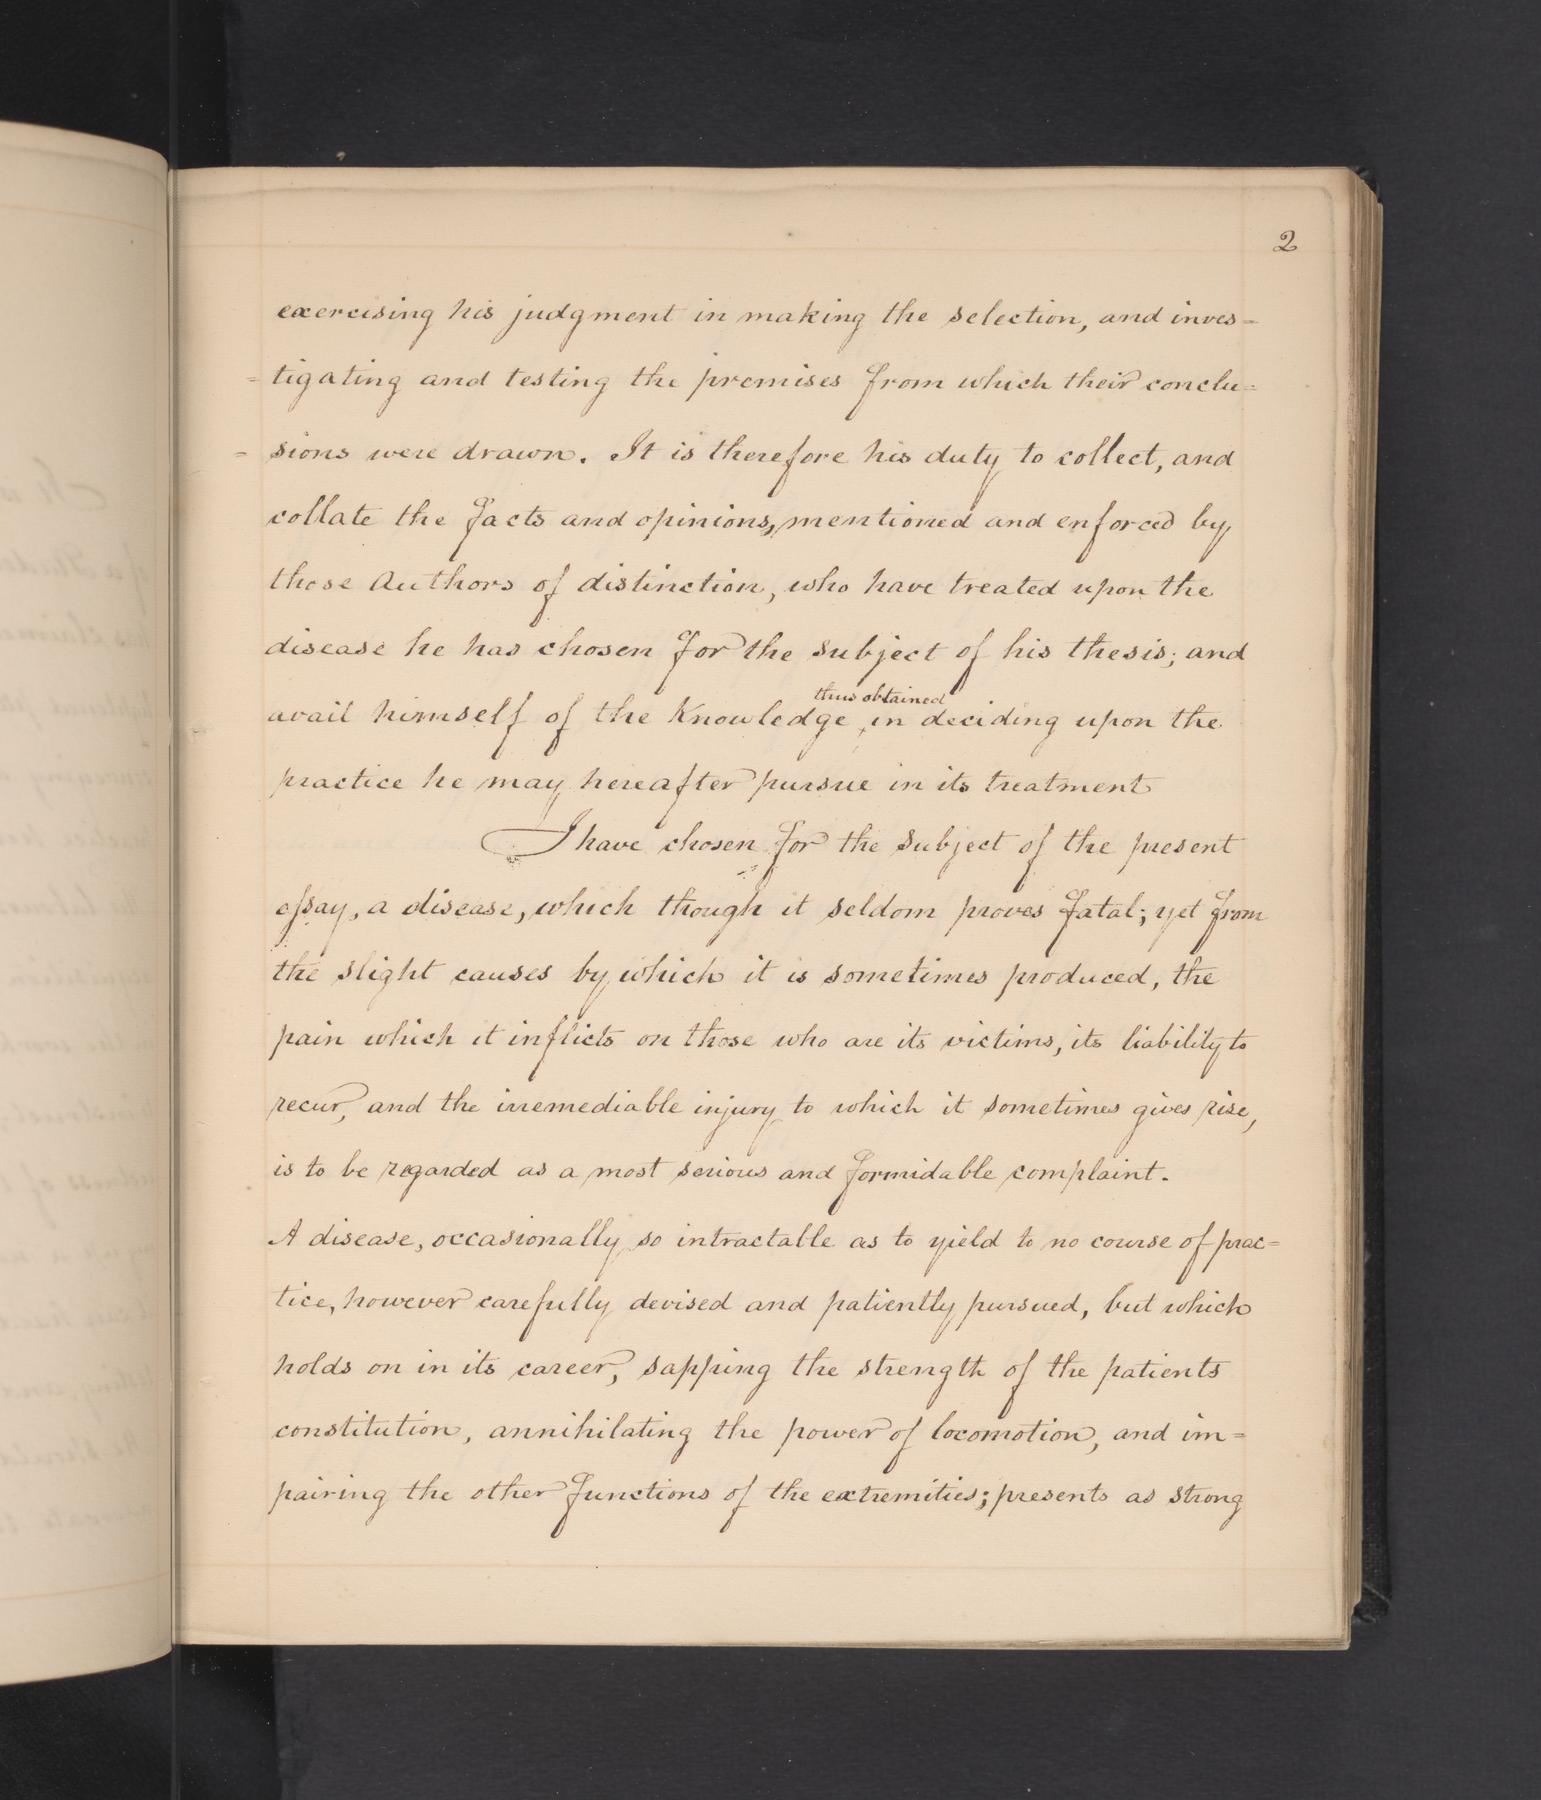 2
exercising his judgment in making the selection, and inves=
=tigating and testing the premises from which their conclu=
=sions were drawn. It is therefore his duty to collect, and
collate the facts and opinions, mentioned and enforced by
those Authors of distinction, who have treated upon the
disease he has chosen for the subject of his thesis; and
thus obtained
avail himself of the Knowledge ‸in deciding upon the
practice he may hereafter pursue in its treatment
I have chosen for the subject of the present
essay, a disease, which though it seldom proves fatal; yet from
the slight causes by which it is sometimes produced, the
pain which it inflicts on those who are its victims, its liability to
recur, and the irremediable injury to which it sometimes gives rise,
is to be regarded as a most serious and formidable complaint.
A disease, occasionally so intractable as to yield to no course of prac=
tice, however carefully devised and patiently pursued, but which
holds on in its career, sapping the strength of the patients
constitution, annihilating the power of locomotion, and im=
pairing the other functions of the extremities; presents as strong